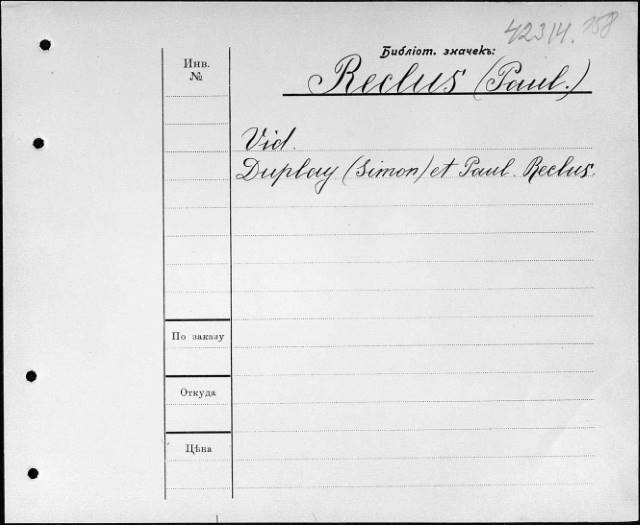 42314. 758
Библіот. значекъ:
Reclus (Paul.)
Инв.
№
Vid.
Duplay (Simon) et Paul. Reclus.
По заказу
Откуда
Цѣна